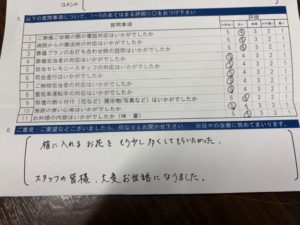 コメント
5. 以下の質問事項について、1～5のあてはまる評価に○をおつけ下さい
質問事項 評価
1 ご葬儀ご依頼の際の電話対応はいかがでしたか 5 4 3 2 1
2 病院からの搬送時の対応はいかがでしたか 5 4 3 2 1
3 葬儀プランのお打ち合わせ時の説明はいかがでしたか 5 4 3 2 1
4 葬儀担当者の対応はいかがでしたか 5 4 3 2 1
5 担当セレモニースタッフの対応はいかがでしたか 5 4 3 2 1
6 司会進行はいかがでしたか 5 4 3 2 1
7 ご納棺担当者の対応はいかがでしたか 5 4 3 2 1
8 霊柩車運転手の対応はいかがでしたか 5 4 3 2 1
9 祭壇の飾り付け（花など）展示物(写真など）はいかがでしたか 5 4 3 2 1
11 お料理の内容はいかがでしたか（味・量） 5 4 3 2 1
6. ご意見・ご要望などございましたら、何なりとお聞かせ下さい ※日々の改善に努めてまいります。
棺に入れる お花を もう少し多くしてもらいたかった。
スタッフの皆様、大変お世話になりました。